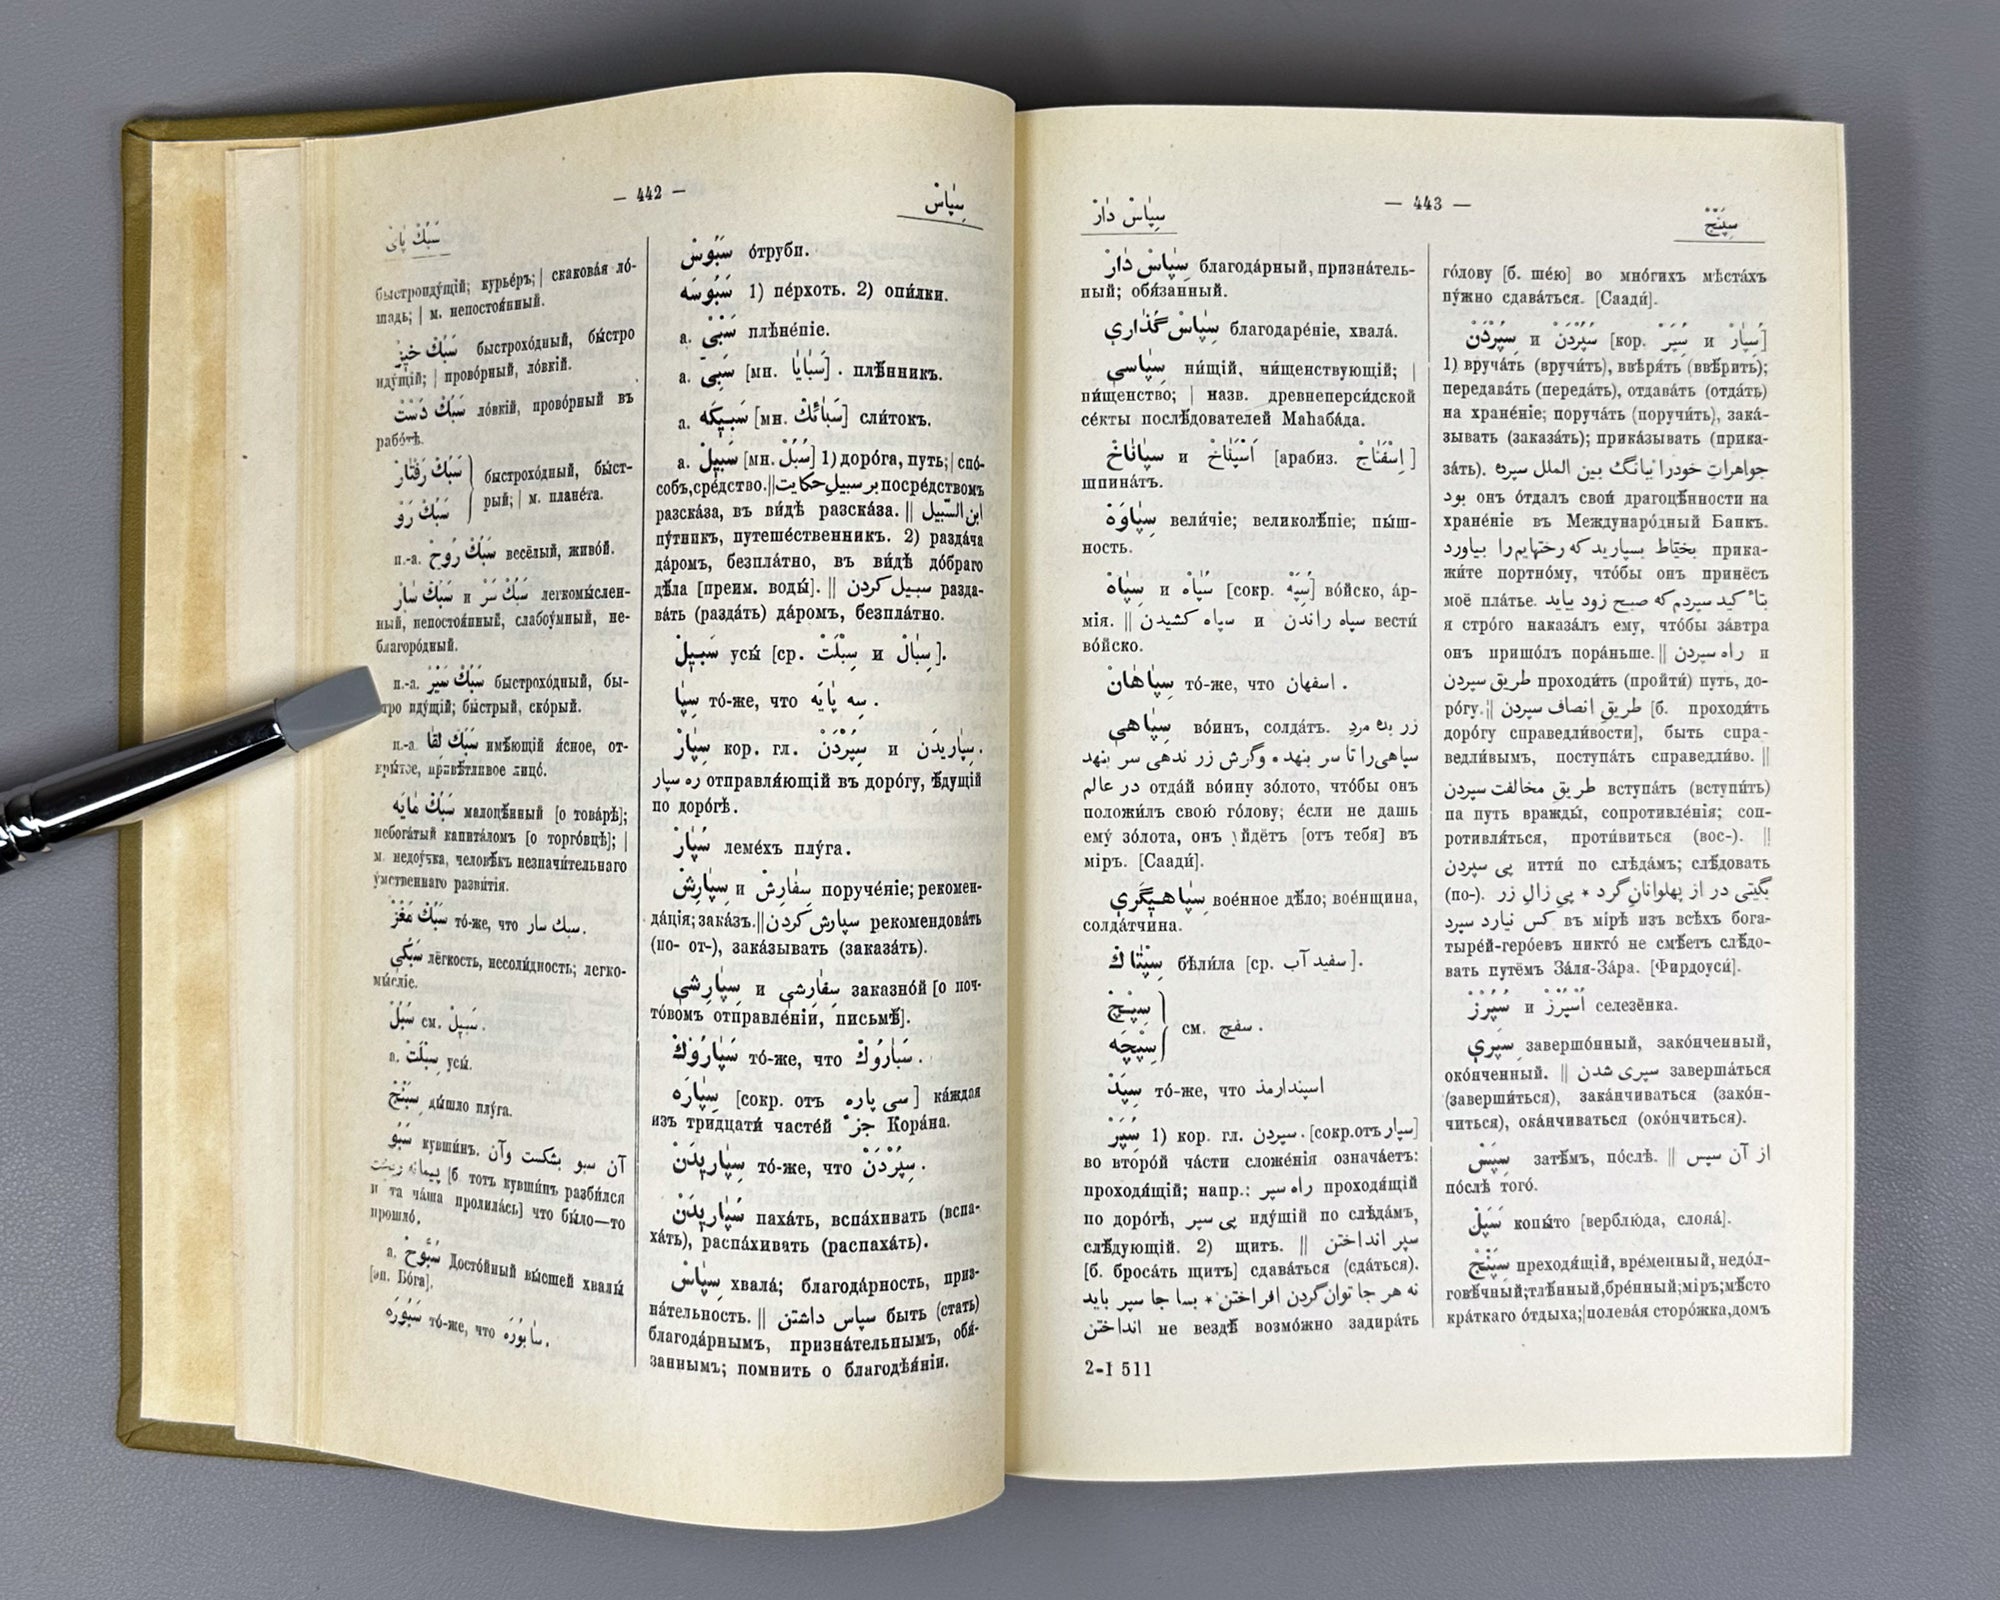 — 442 —
سَبُكْ پَايْ
سِپَاسْ
быстроиду́щій; курье́ръ; | скакова́я ло́-
шадь; | м. непостоя́нный.
سَبُكْ خِيزْ быстрохо́дный, бы́стро
иду́щій; | прово́рный, ло́вкій.
سَبُكْ دَسْتْ ло́вкій, прово́рный въ
рабо́тѣ.
سَبُكْ رَفْتَارْ
سَبُكْ رَوْ
быстрохо́дный, быст-
рый; | м. плане́та.
п.-а. سَبُكْ رُوحْ весёлый, живо́й.
سَبُكْ سَارْ и سَبُكْ سَرْ легкомы́слен-
ный, непостоя́нный, слабоу́мный, не-
благоро́дный.
п.-а. سَبُكْ سَيْرْ быстрохо́дный, бы-
тро иду́щій; бы́стрый, ско́рый.
п.-а. سَبُكْ لِقَا имѣ́ющій я́сное, от-
кры́тое, привѣ́тливое лицо́.
سَبُكْ مَايَه малоцѣ́нный [о това́рѣ];
небога́тый капита́ломъ [о торго́вцѣ]; |
м. недоу́чка, человѣ́къ незначи́тельнаго
у́мственнаго разви́тія.
سَبُكْ مَغْزْ то́-же, что سبك سار.
سَبُكِي лёгкость, несоли́дность; легко-
мы́сліе.
سُبُلْ см. سَبِيلْ.
а. سِبْلَتْ усы́.
سِبَنْجْ ды́шло плу́га.
سَبُو кувши́нъ. آن سبو بشكست وآن
پيمانه ريخت [б. тотъ кувши́нъ разби́лся
и та ча́ша пролила́сь] что бы́ло—то
прошло́.
а. سُبُّوحْ Досто́йный вы́сшей хвалы́
[эп. Бо́га].
سَبُورَه то́-же, что سَابُورَه.
سَبُوسْ о́труби.
سَبُوسَه 1) пе́рхоть. 2) опи́лки.
а. سَبْيْ плѣне́ніе.
а. سَبِيّ [мн. سَبَايَا]. плѣ́нникъ.
а. سَبِيكَه [мн. سَبَائِكْ] сли́токъ.
а. سَبِيلْ [мн. سُبُلْ] 1) доро́га, путь; | спо́-
собъ, сре́дство. || بر سبيل حكايت посре́дствомъ
разска́за, въ ви́дѣ разска́за. || ابن السّبيل
пу́тникъ, путеше́ственникъ. 2) разда́ча
да́ромъ, безпла́тно, въ ви́дѣ до́браго
дѣ́ла [преим. воды́]. || سبيل كردن разда-
ва́ть (разда́ть) да́ромъ, безпла́тно.
سَبِيلْ усы́ [ср. سِبْلَتْ и سِبَالْ].
سِپَا то́-же, что سِه پَايَه.
سِپَارْ кор. гл. سِپُرْدَنْ и سِپَارِيدَن.
ره سپار отправля́ющій въ доро́гу, ѣ́дущій
по доро́гѣ.
سُپَارْ леме́хъ плу́га.
سِپَارِشْ и سِفَارِشْ поруче́ніе; рекомен-
да́ція; зака́зъ. || سپارش كردن рекомендова́ть
(по- от-), зака́зывать (заказа́ть).
سِپَارِشِي и سِفَارِشِي заказно́й [о поч-
то́вомъ отправле́ніи, письмѣ́].
سَپَارُوكْ то́-же, что سَبَارُوكْ.
سِپَارَه [сокр. отъ سی پاره] ка́ждая
изъ тридцати́ часте́й جزء Кора́на.
سِپَارِيدَنْ то́-же, что سِپُرْدَنْ.
سُپَارِيدَنْ паха́ть, вспа́хивать (вспа-
ха́ть), распа́хивать (распаха́ть).
سِپَاسْ хвала́; благода́рность, приз-
на́тельность. || سپاس داشتن быть (стать)
благода́рнымъ, призна́тельнымъ, обя́-
заннымъ; помнить о благодѣя́ніи.
— 443 —
سِپَاسْ دَارْ
سِپَنْجْ
سِپَاسْ دَارْ благода́рный, призна́тель-
ный; обя́занный.
سِپَاسْ گُذَارِي благодаре́ніе, хвала́.
سِپَاسِي ни́щій, ни́щенствующій; |
ни́щенство; | назв. древнеперси́дской
се́кты послѣ́дователей Маһаба́да.
سِپَانَاخْ и اَسْپَنَاخْ [арабиз. اِسْفَنَاجْ]
шпина́тъ.
سِپَاوَهْ вели́чіе; великолѣ́піе; пы́ш-
ность.
سِپَاهْ и سُپَاهْ [сокр. سِپَهْ] во́йско, а́р-
мія. || سپاه كشيدن и سپاه راندن вести́
во́йско.
سِپَاهَانْ то́-же, что اسفهان.
سِپَاهِي во́инъ, солда́тъ. زر بده مرد
سپاهی را تا سر بنهد * وگرش زر ندهی سر بنهد
در عالم отда́й во́ину зо́лото, что́бы онъ
положи́лъ свою́ го́лову; е́сли не дашь
ему́ зо́лота, онъ уйдётъ [отъ тебя́] въ
міръ. [Саади́].
سِپَاهِيگَرِي вое́нное дѣ́ло; вое́нщина,
солда́тчина.
سِپْتَاكْ бѣли́ла [ср. سفيد آب].
سِپِچْ
سِپِچَه
см. سفچ.
سِپَدْ то́-же, что اسپندارمذ
سُپَرْ 1) кор. гл. سپردن. [сокр. отъ سپار]
во второ́й ча́сти сложе́нія означа́етъ:
проходя́щій; напр.: راه سپر проходя́щій
по доро́гѣ, پی سپر иду́щій по слѣда́мъ,
слѣ́дующій. 2) щитъ. || سپر انداختن
[б. броса́ть щитъ] сдава́ться (сда́ться).
نه هر جا توان گردن افراختن * بسا جا سپر بايد
انداختن не вездѣ́ возмо́жно задира́ть
2-I 511
го́лову [б. ше́ю] во мно́гихъ мѣста́хъ
ну́жно сдава́ться. [Саади́].
سِپُرْدَنْ и سُپُرْدَنْ [кор. سِپَرْ и سِپَارْ]
1) вруча́ть (вручи́ть), ввѣря́ть (ввѣ́рить);
передава́ть (переда́ть), отдава́ть (отда́ть)
на хране́ніе; поруча́ть (поручи́ть), зака́-
зывать (заказа́ть); прика́зывать (прика-
за́ть). جواهرات خودرا ببانگ بين الملل سپرده
بود онъ о́тдалъ свои́ драгоцѣ́нности на
хране́ніе въ Междунаро́дный Банкъ.
بخيّاط بسپاريد كه رختهايم را بياورد прика-
жи́те портно́му, что́бы онъ принёсъ
моё пла́тье. بتأكيد سپردم كه صبح زود بيايد
я стро́го наказа́лъ ему́, что́бы за́втра
онъ пришо́лъ пора́ньше. || راه سپردن и
طريق سپردن проходи́ть (пройти́) путь, до-
ро́гу. || طريق انصاف سپردن [б. проходи́ть
доро́гу справедли́вости], быть спра-
ведли́вымъ, поступа́ть справедли́во. ||
طريق مخالفت سپردن вступа́ть (вступи́ть)
на путь вражды́, сопротивле́нія; соп-
ротивля́ться, проти́виться (вос-). ||
پی سپردن итти́ по слѣда́мъ; слѣ́довать
(по-). بگيتی در از پهلوانان گرد * پی زال زر
كس نيارد سپرد въ мі́рѣ изъ всѣ́хъ бога-
тыре́й-геро́евъ никто́ не смѣ́етъ слѣ́до-
вать путёмъ За́ля-За́ра. [Фирдоуси́].
سُپُرْزْ и اُسْپُرْزْ селезёнка.
سِپَرِي завершо́нный, зако́нченный,
око́нченный. || سپری شدن заверша́ться
(заверши́ться), зака́нчиваться (зако́н-
читься), ока́нчиваться (око́нчиться).
سِپَسْ затѣ́мъ, по́слѣ. || از آن سپس
по́слѣ того́.
سَپَلْ копы́то [верблю́да, слона́].
سِپَنْجْ преходя́щій, вре́менный, недол-
говѣ́чный; тлѣ́нный, бре́нный; міръ; мѣ́сто
кра́ткаго о́тдыха; | полева́я сторо́жка, домъ